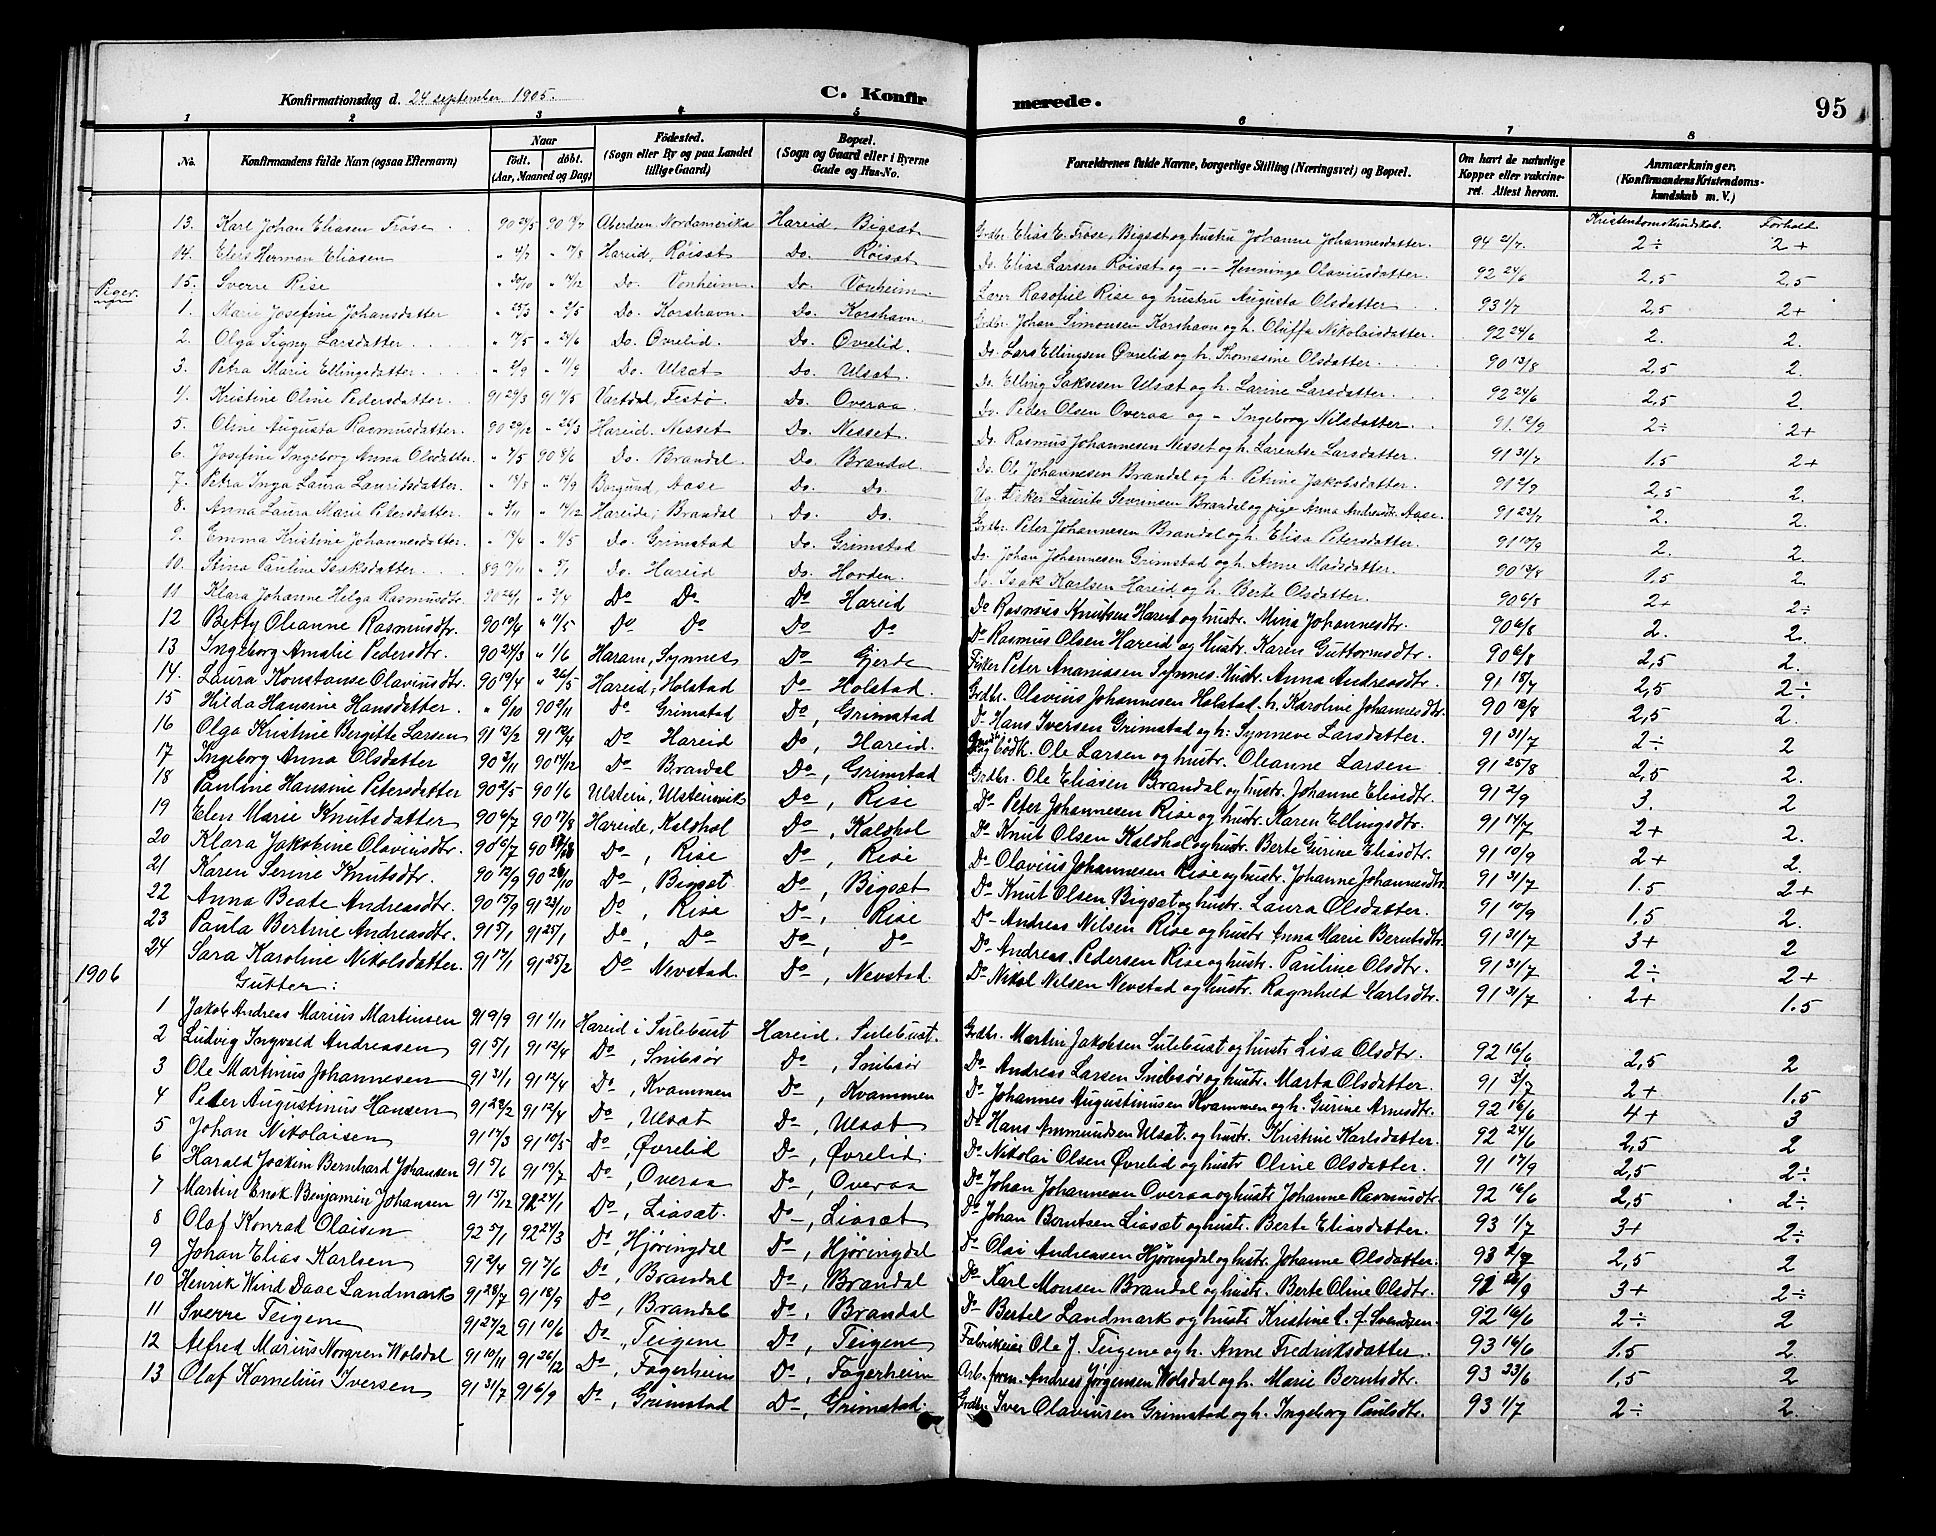 Konfirmationsdag d. 24 september 1905. C. Konfirmerede. 95
1 2 3 4 5 6 7 8
No. Konfirmandens fulde Navn (ogsaa Efternavn) Naar født. døbt. (Aar, Maaned og Dag) Fødested. (Sogn eller By og paa Landet tillige Gaard) Bopæl. (Sogn og Gaard eller i Byerne Gade og Hus-No. Forældrenes fulde Navne, borgerlige Stilling (Næringsvei) og Bopæl. Om havt de naturlige Kopper eller vaccineret. Attest herom. Anmærkninger. (Konfirmandens Kristendomskundskab m. V.)
Kristendomskundskab. Forhold.
13. Karl Johan Eliasen Frøse 90 24/5 Aberdeen Nordamerika Hareid, Bigsæt Grdbr. Elias E. Frøse, Bigsæt og hustru Johanne Johannesdatter. 94 21/7. 2÷ 2+
14. Elers Herman Eliasen Hareid, Røisæt Do. Røisæt Do. Elias Larsen Røisæt og -"- Henninge Olaviusdatter. 92 24/6 2,5 2,5
15. Sverre Rise Do. Vonheim. Do. Vonheim. Lærer Rise og hustru Augusta Olsdatter 93 1/7 2,5 2+
Piger.
1. Marie Josefine Johansdatter " 25/3 Do. Korshavn. Do. Korshavn. Grdbr. Johan Simonsen Korshavn og h. Oluffa Nikolaisdatter. 92 24/6 2. 2.
2. Olga Signy Larsdatter Do. Øvrelid. Do. Øvrelid. Do. Lars Ellingsen Øvrelid og h. Thomasine Olsdatter. 90 13/8 2,5 2.
3. Petra Marie Ellingsdatter Do. Ulsæt Do. Ulsæt. Do. Elling Saksesen Ulsæt og h. Larine Larsdatter. 92 24/6 2,5 2.
4. Kristine Oline Pedersdatter 91 29/3 Vartdal, Festø Do. Overaa. Do. Peder Olsen Overaa og - Ingeborg Nilsdatter. 91. 12/9 2÷ 2+
5. Oline Augusta Rasmusdatter. 90 29/12 " 26/3 Hareid. Nesset Do. Nesset. Do. Rasmus Johannesen Nesset og h. Larentse Larsdatter. 91 31/7 1.5 2+
6. Josefine Ingeborg Anna Olsdatter. " 7/5 90 8/6 Do. Brandal. Do. Brandal Do. Ole Johannesen Brandal og h. Petrine Jakobsdatter. 91 2/9 2,5 2.
7. Petra Inga Laura Lauritsdatter. Borgund, Aase Do. Do. Fisker Laurits Sevrinsen Brandal og pige Anna Andreasdt. Aase. 91 23/7 2. 2.
8. Anna Laura Marie Petersdatter. Hareide, Brandal Do. Do. Grdbr. Peter Johannesen Brandal og h. Elisa Petersdatter. 2. 2.
9. Emma Kristine Johannesdatter. Do. Grimstad Do. Grimstad Do. Johan Johannesen Grimstad og h. Anne Madsdatter. 1.5 2.
10. Stina Pauline Isaksdatter " 5/1 Do. Hareid Do. Hovden. Do. Isak Karlsen Hareid og h. Berte Olsdatter. 90 6/8 2+ 2÷
11 Klara Johanne Helga Rasmusdtr. Do Do Do Hareid Do Rasmus Knutsen Hareid og hustr. Mina Johannesdtr. 90 6/8 2. 2.
12 Betty Oleanne Rasmusdtr. Do Do Do Do Do Rasmus Olsen Hareid og Hustr. Karen Guttormsdtr. 90 6/8 2,5 2.
13 Ingeborg Amalie Pedersdtr. 90 24/3 " 1/6 Haram, Synnes Do Gjerde Fisker Peter Ananiassen Synnes Hustr. Anna Andreasdtr. 2,5 2÷
14. Laura Konstanse Olaviusdtr. 90 19/4 " 26/5 Hareid, Holstad Do Holstad. Grdbr. Olavius Johannesen Holstad. h. Karoline Johannesdtr. 2,5 2.
15 Hilda Hansine Hansdatter " 6/10 90 2/11 Do Grimstad Do, Grimstad Do Hans Iversen Grimstad og h. Synneve Larsdatter. 91 31/7 2÷ 2
16 Olga Kristine Bergitte Larsen Do Hareid Do, Hareid. Ole Larsen og hustr. Oleanne Larsen 91 25/8 2,5 2.
17 Ingeborg Anna Olsdatter Do Brandal Do, Grimstad Grdbr. Ole Eliasen Brandal og hustr. Johanne Eliasdtr. 91 2/9 3. 2
18 Pauline Hansine Petersdatter 90 2/5 90 1/6 Ulstein, Ulsteinvik Do, Rise Do Peter Johannesen Rise og hustr. Karen Ellingsdtr. 2+ 2.
19 Elen Marie Knutsdatter 90 6/7 90 17/8 Hareide, Kaldhol Do, Kaldhol Do Knut Olsen Kaldhol og hustr. Berte Gurine Eliasdtr. 91 10/9 2+ 2.
20 Klara Jakobine Olaviusdtr. Do, Rise Do, Rise Do Olavius Johannesen Rise og hustr. Johanne Johannesdtr. 91 31/7 1.5 2+
21 Karen Serine Knutsdtr. Do, Bigsæt. Do, Bigsæt Do Knut Olsen Bigsæt og hustr. Laura Olsdatter. 91 10/9 1,5 2.
22 Anna Beate Andreasdtr. Do, Rise Do, Rise Do Andreas Nilsen Rise og hustr. Anna Marie Berntsdtr. 91 31/7 3+ 2
23 Paula Bertine Andreasdtr. 91 5/1 91 25/1 Do, Do Do, Do Do Andreas Pedersen Rise og hustr. Pauline Olsdtr. 91 31/7 2÷ 2+
24 Sara Karoline Nikolsdatter. 91 25/2 Do Nevstad. Do, Nevstad. Do Nikol Nilsen Nevstad og hustr. Ragnhild Karlsdtr. 91 31/7 2+ 1.5
1906 Gutter:
1 Jakob Andreas Marius Martinsen 91 9/9 91 1/11 Hareid i Sulebust Hareid. Sulebust. Grdbr. Martin Jakobsen Sulebust og hustr. Lisa Olsdtr. 92 16/6 2,5 2
2 Ludvig Ingvald Andreasen 91 5/1 91 12/4 Do, Snibsør Do, Snibsør Do Andreas Larsen Snibsør og hustr. Marta Olsdatter. 2+ 1.5
3 Ole Martinus Johannesen 91 31/1 91 12/4 Do, Kvammen Do, Kvammen Do Johannes Augustinusen Kvammen og h. Gurine Arnesdtr. 92 16/6 4+ 3
4 Peter Augustinus Hansen 91 23/2 91 12/4 Do, Ulsæt Do, Ulsæt Do Hans Ammundsen Ulsæt. og hustr. Kristine Karlsdatter. 92 24/6 2,5 2
5 Johan Nikolaisen 91 17/3 91 10/5 Do, Øvrelid Do, Øvrelid. Do Nikolai Olsen Øvrelid og hustr. Oline Olsdatter. 91 17/9 2,5 2÷
6 Harald Joakim Bernhard Johansen 91 5/6 91 19/7 Do, Overaa Do, Overaa Do Johan Johannesen Overaa og hustr. Johanne Rasmusdtr. 92 16/6 2,5 2÷
7 Martin Enok Benjamin Johansen 91 15/12 92 24/1 Do, Liasæt. Do, Liasæt Do Johan Berntsen Liasæt og hustr. Berte Eliasdatter. 93 1/7 3+ 2÷
8 Olaf Konrad Olaisen 92 5/1 92 24/3 Do, Hjøringdal Do, Hjøringdal Do Olai Andreasen Hjøringdal og hustr. Johanne Olsdatter. 2,5 2
9 Johan Elias Karlsen 91 2/4 91 7/6 Do, Brandal Do, Brandal Do Karl Monsen Brandal og hustr. Berte Oline Olsdtr. 3+ 2÷
10 Henrik Wind Daae Landmark 91 28/7 91 18/9 Do, Brandal Do, Brandal Do Bertel Landmark og hustr. Kristine Svendsen. 92 16/6 2÷ 2
11 Sverre Teigene 91 27/2 91 10/6 Do, Teigene Do, Teigene Fabrikeier Ole J. Teigene og h. Anne Fredriksdatter. 93 16/6 1.5 2
12 Alfred Marius Norgren Wolsdal 91 10/11 91 26/12 Do, Fagerheim Do, Fagerheim Arb.form. Andreas Jørgensen Wolsdal og h. Marie Berntsdtr. 93 23/6 1,5 2
13 Olaf Kornelius Iversen 91 31/7 91 6/9 Do, Grimstad Do, Grimstad. Grdbr. Iver Olaviusen Grimstad og h. Ingeborg Paulsdtr. 93 1/7 2÷ 2.